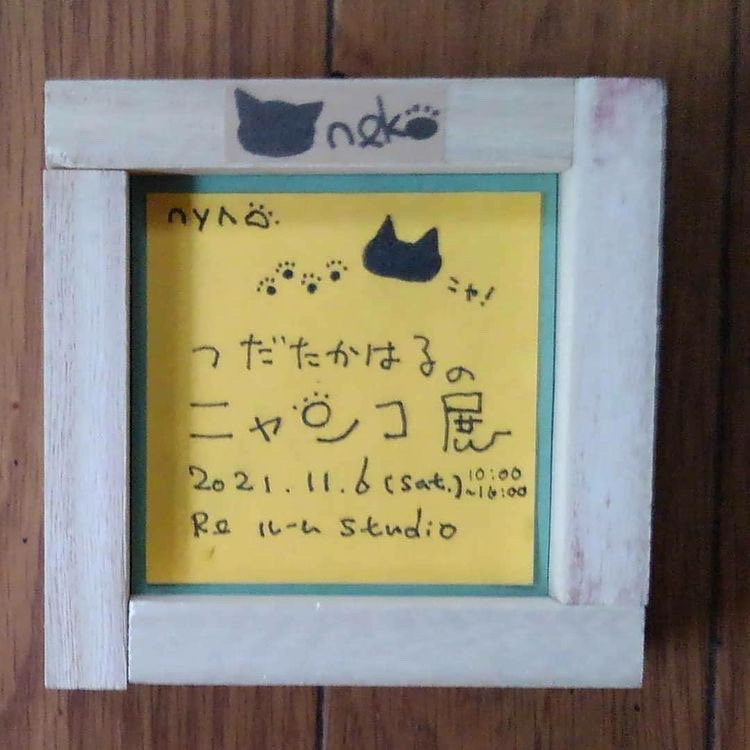 neko
nyn
ニャ!
つだたかはるの
ニャンコ展
2021.11.6 (Sat.) 10:00
~16:00
Re ルーム Studio